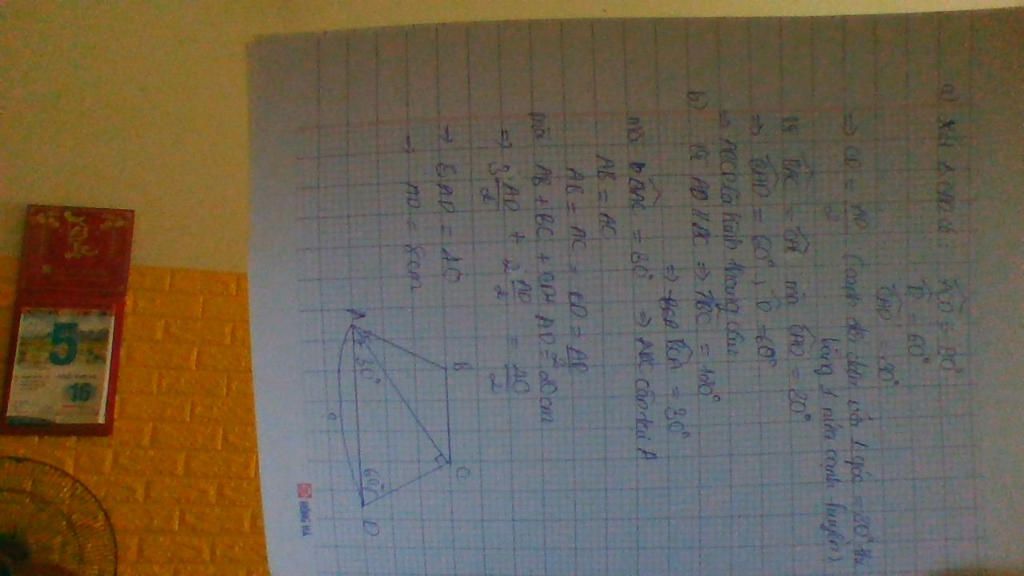 a) Xét Δ ACD có: ACD = 90°
D = 60°
CAD = 30°
=> CD = AD/2 (cạnh đối diện với 1 góc = 30° thì
bằng 1 nửa cạnh huyền)
BAC = CAD mà CAD = 30°
=> BAD = 60°, D = 60°
=> ABCD là hình thang cân
b) AD // BC => ABC = 120°
=> BCA = 30°
mà BAC = 30° => ABC cân tại
AB =
AB = = CD = AD/2
mà AB + BC + CD + AD = 20cm
=> 3 AD/2 + 2 AD/2 =
=> 5AD =
=> AD = 8cm
A
B
C
D
30°
60°
HỒNG HÀ
5